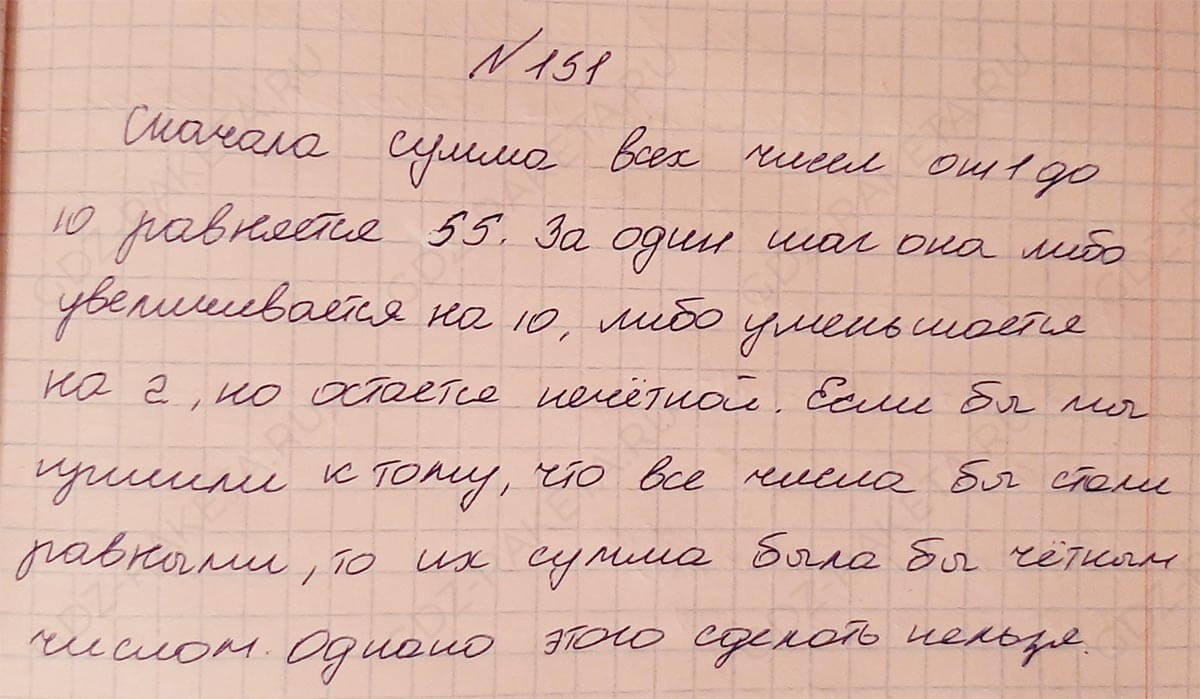 № 151
Сначала сумма всех чисел от 1 до
10 равняется 55. За один шаг она либо
увеличивается на 10, либо уменьшается
на 2, но остаётся нечётной. Если бы мы
пришли к тому, что все числа бы стали
равными, то их сумма была бы чётным
числом. Однако этого сделать нельзя.
GDZ-RAKETA.RU